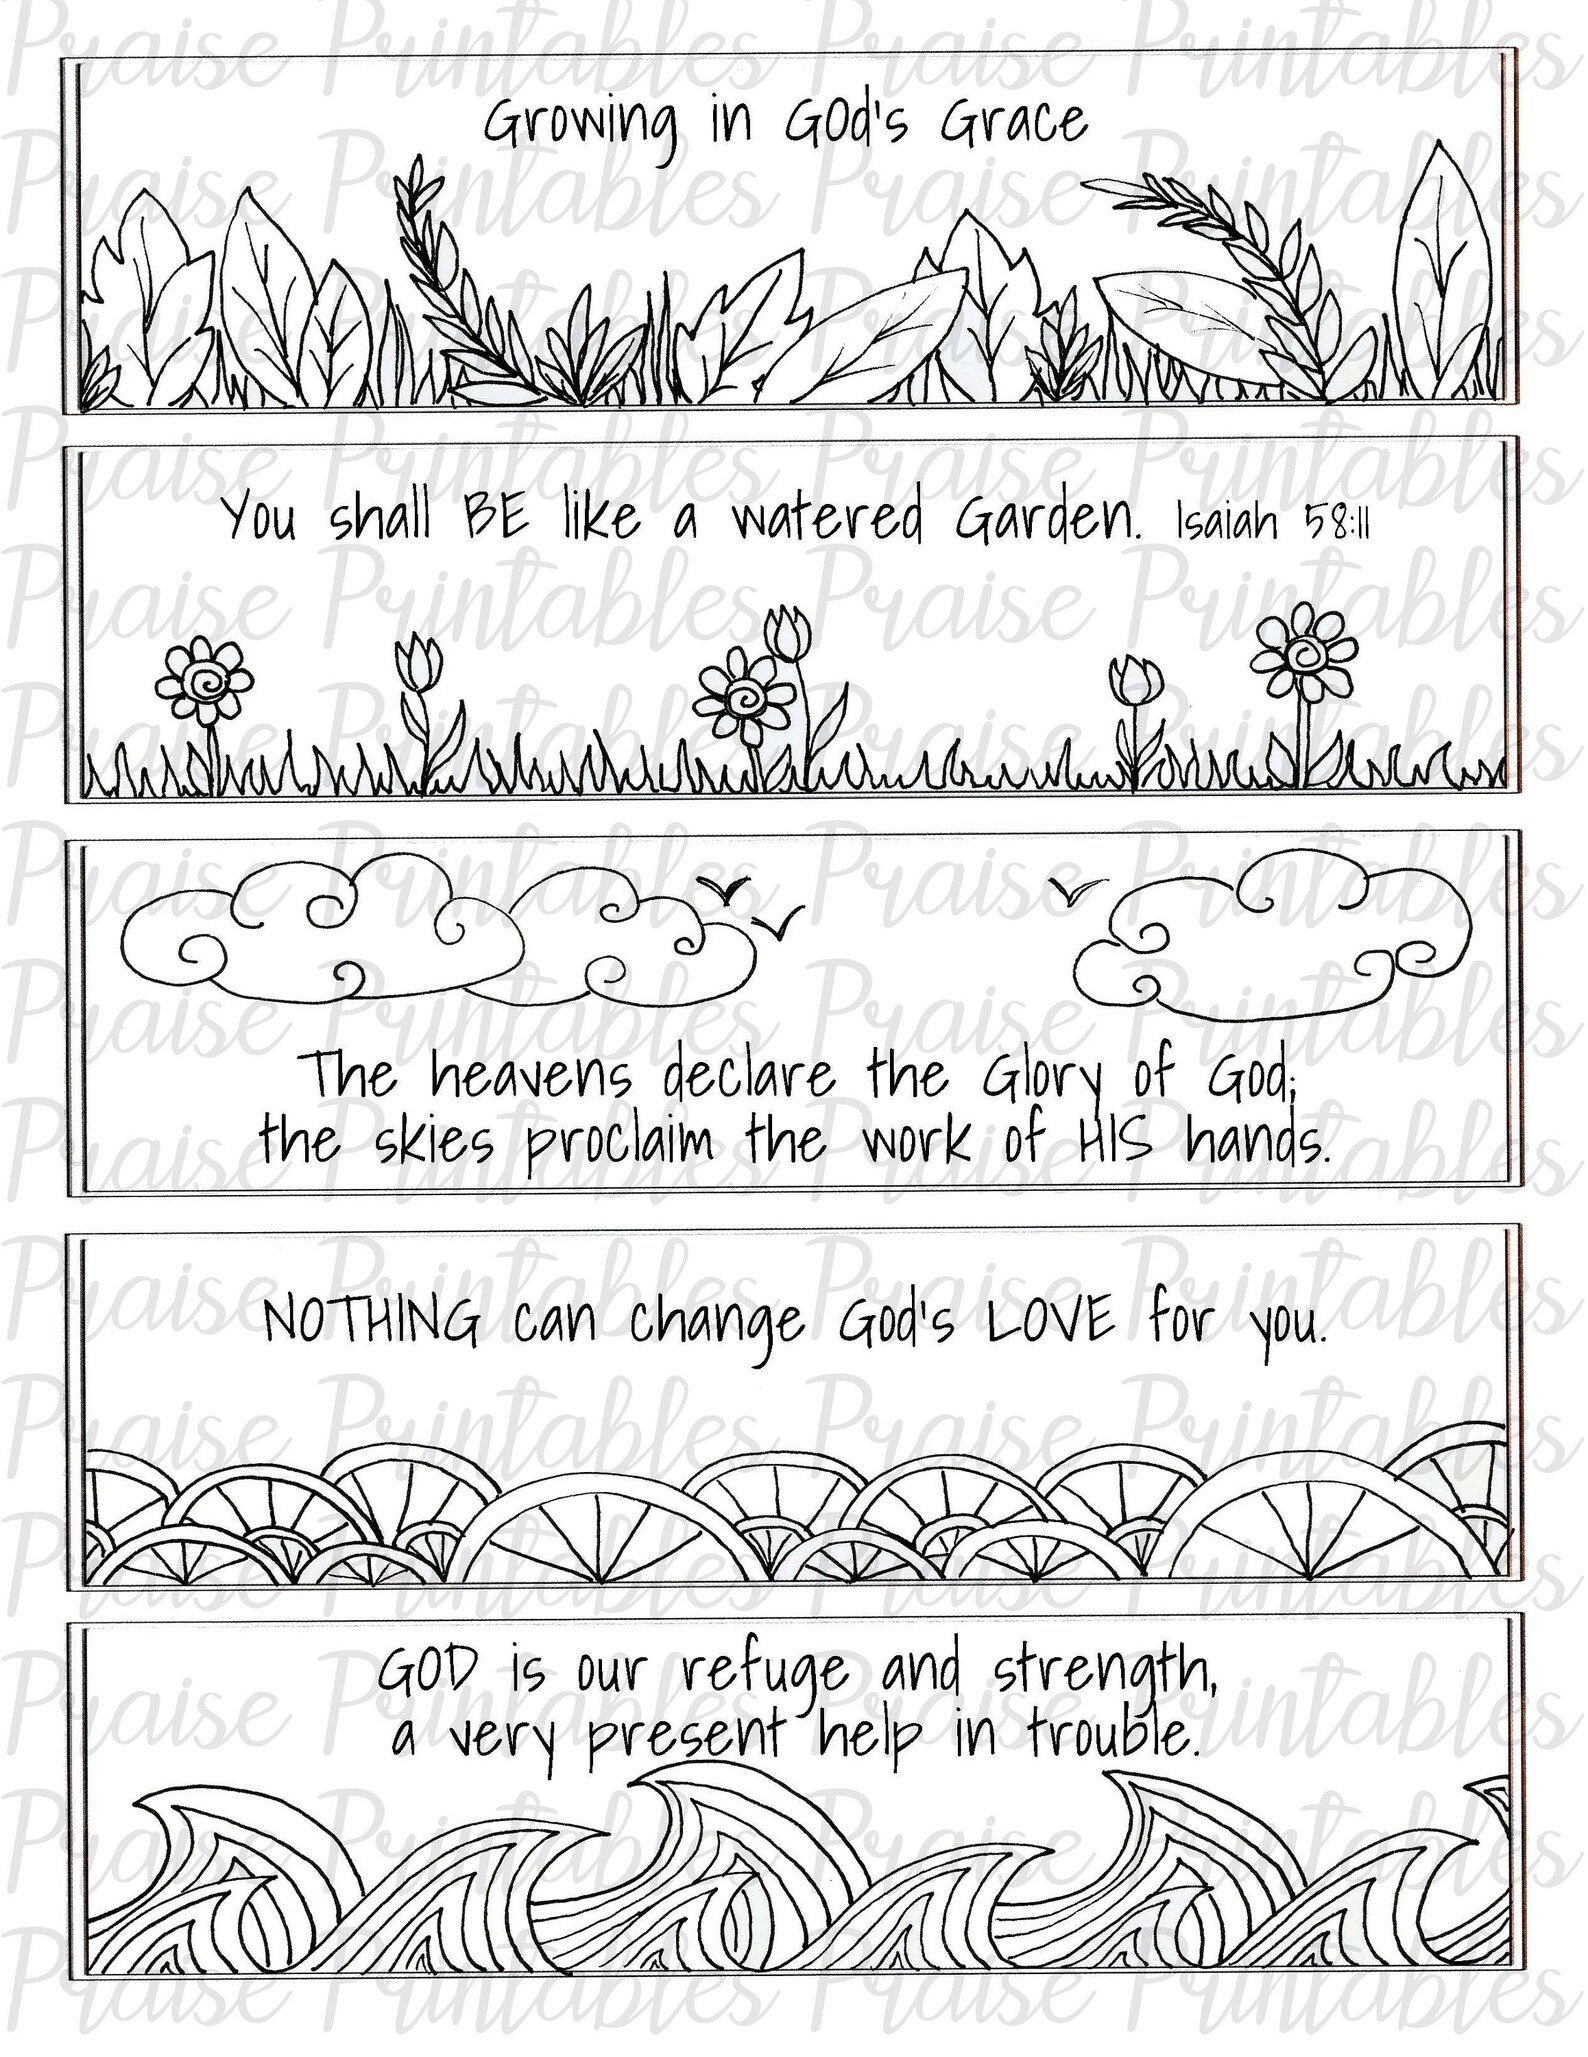 Growing in GOd's Grace
You shall BE like a watered Garden. Isaiah 58:11
The heavens declare the Glory of God;
the skies proclaim the work of HIS hands.
NOTHING can change God's LOVE for you.
GOD is our refuge and strength,
a very present help in trouble.
Praise Printables